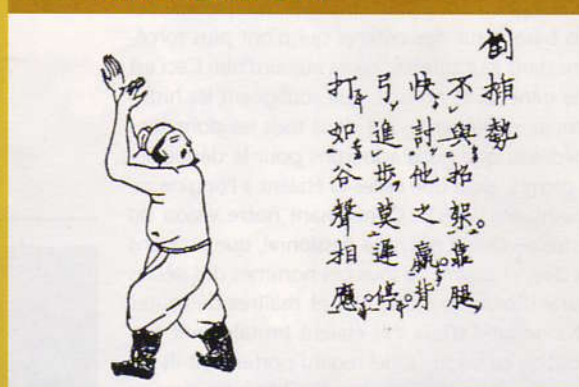 倒插勢
不與招架靠腿
快討他之贏背
弓進步莫遲停
打如谷聲相應